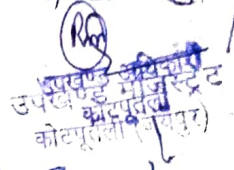 उपखण्ड अधिकारी
उपखण्ड मजिस्ट्रेट
कोटपूतली
कोटपूतली (जयपुर)